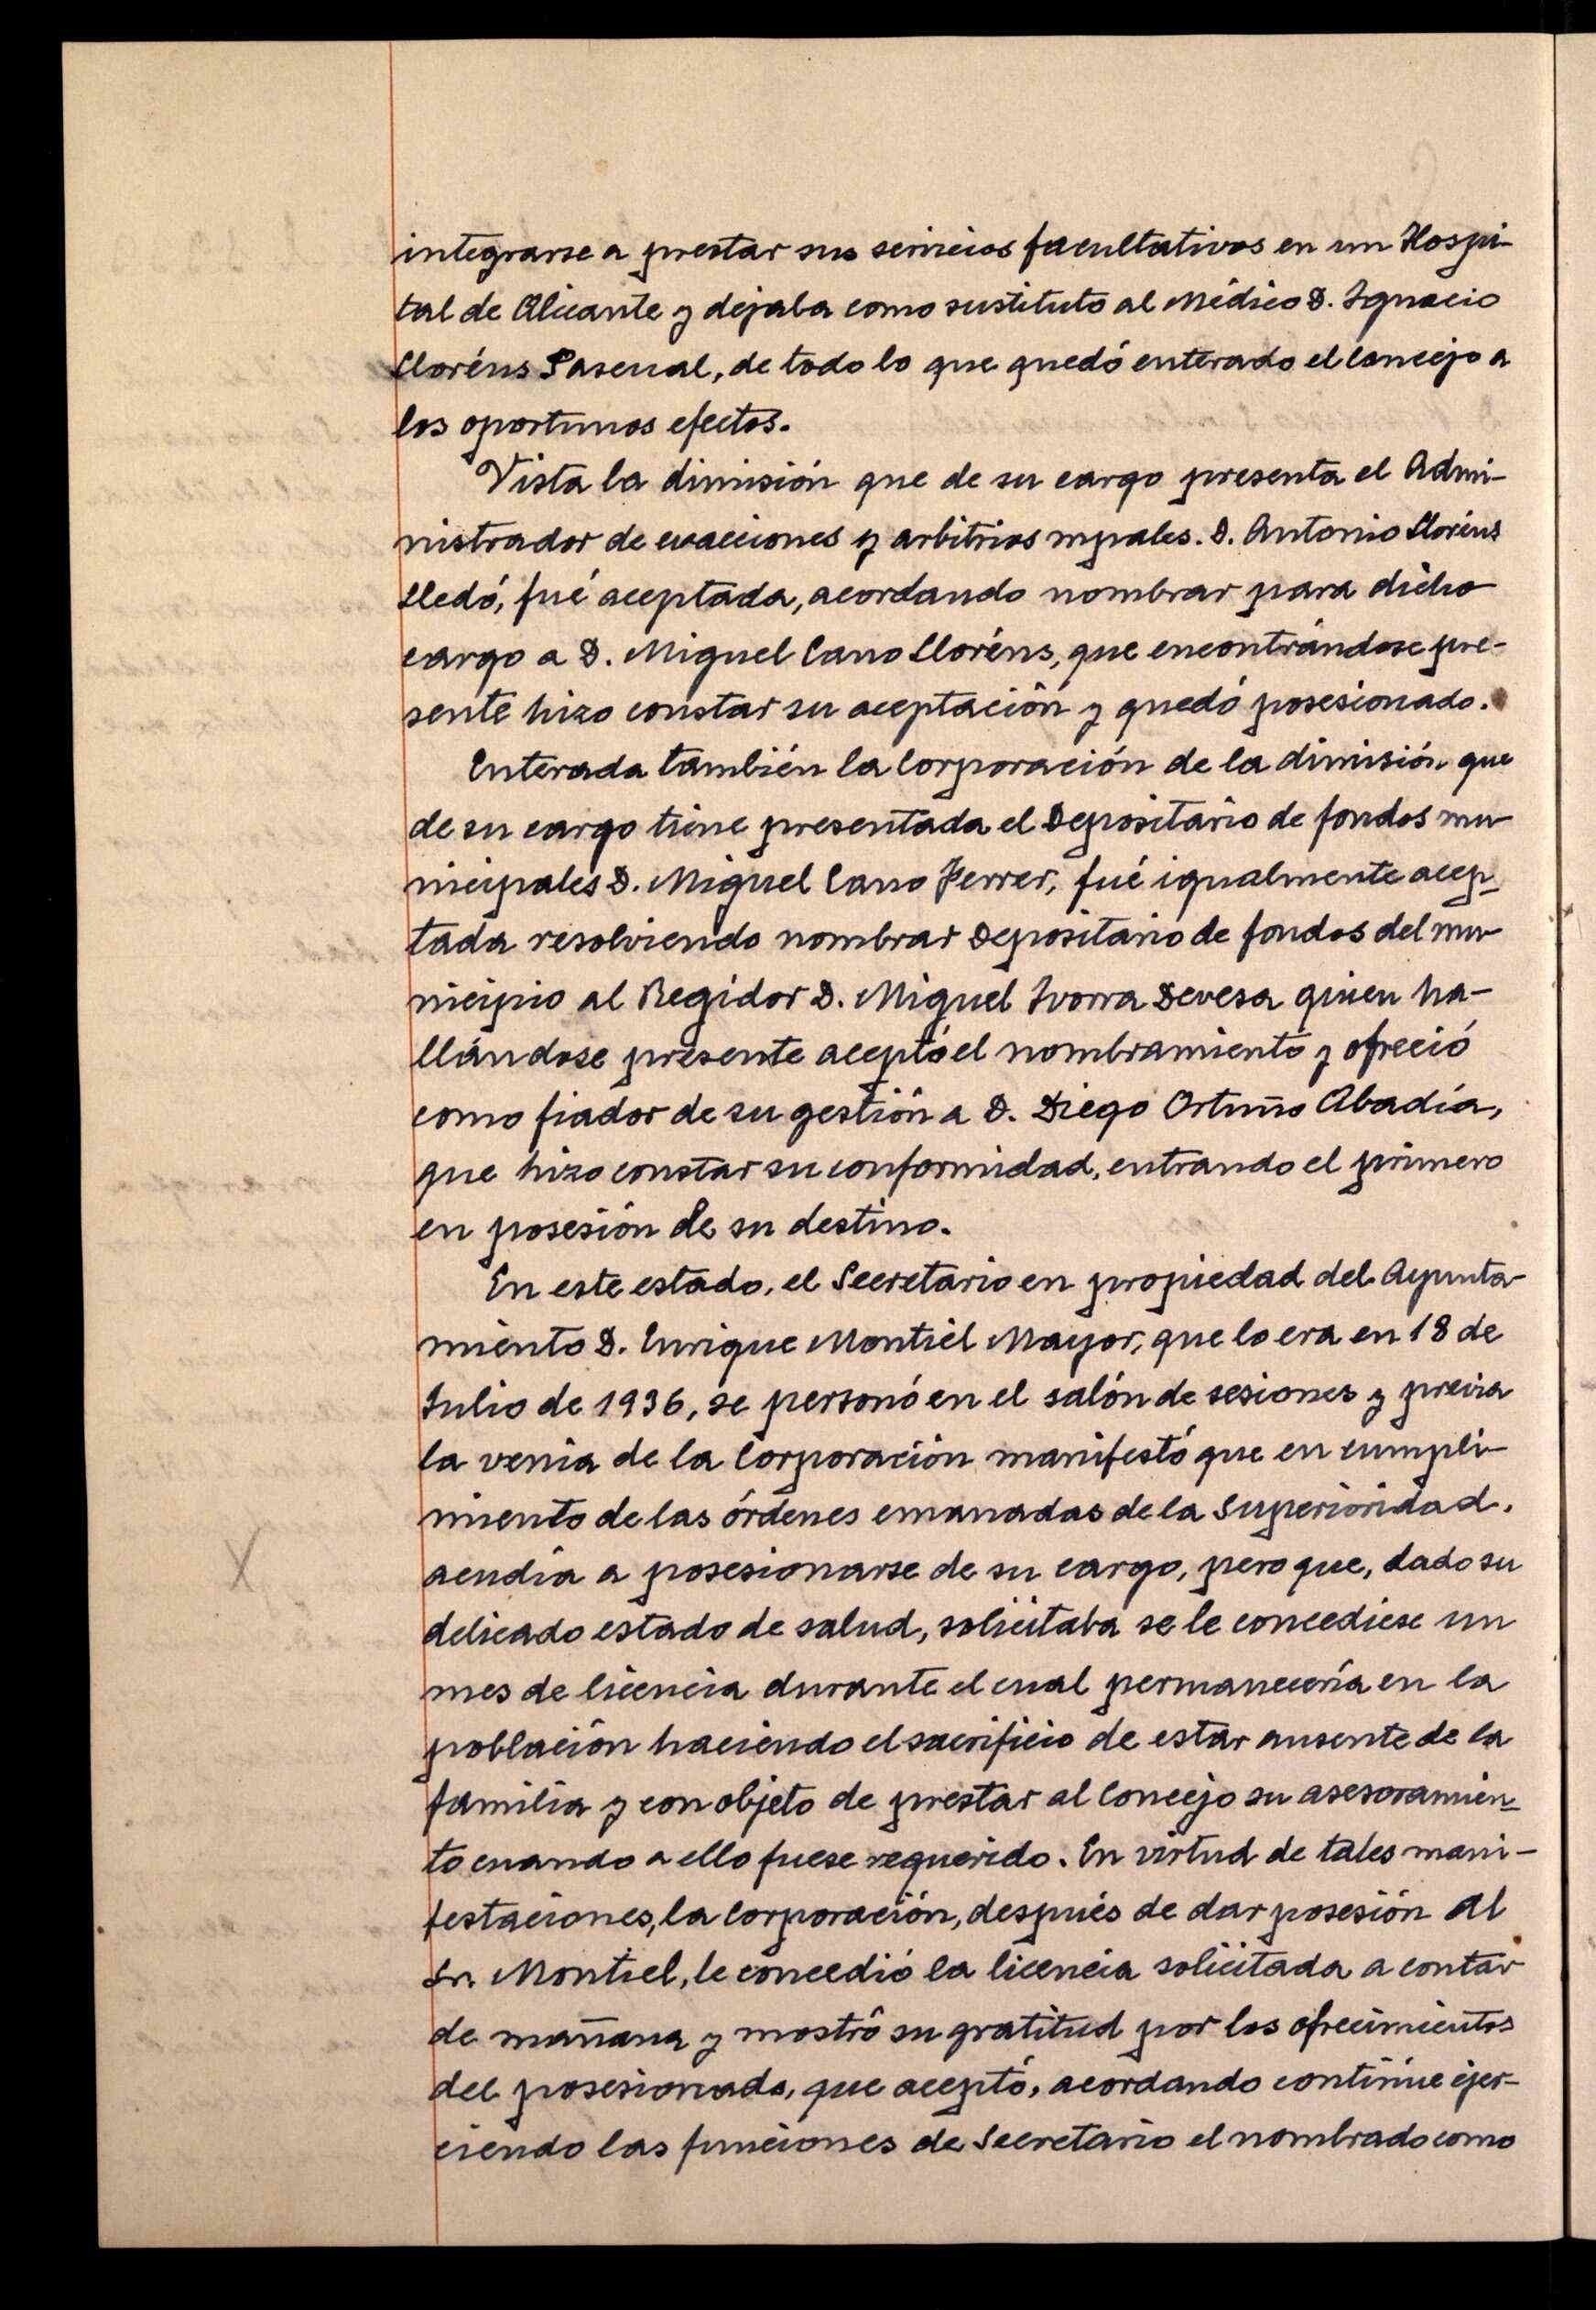 integrarse a prestar sus servicios facultativos en un Hospi-
tal de Alicante y dejaba como sustituto al Médico D. Ignacio
Lloréns Pascual, de todo lo que quedó enterado el Concejo a
los oportunos efectos.
Vista la dimisión que de su cargo presenta el Admi-
nistrador de exacciones y arbitrios mpales. D. Antonio Lloréns
Lledó, fué aceptada, acordando nombrar para dicho
cargo a D. Miguel Cano Lloréns, que encontrándose pre-
sente hizo constar su aceptación y quedó posesionado.
Enterada también la Corporación de la dimisión que
de su cargo tiene presentada el Depositario de fondos mu-
nicipales D. Miguel Cano Ferrer, fué igualmente acep-
tada resolviendo nombrar Depositario de fondos del mu-
nicipio al Regidor D. Miguel Ivorra Devesa quien ha-
llándose presente aceptó el nombramiento y ofreció
como fiador de su gestión a D. Diego Ortuño Abadía,
que hizo constar su conformidad, entrando el primero
en posesión de su destino.
En este estado, el Secretario en propiedad del Ayunta-
miento D. Enrique Montiel Mayor, que lo era en 18 de
Julio de 1936, se personó en el salón de sesiones y previa
la venia de la Corporación manifestó que en cumpli-
miento de las órdenes emanadas de la Superioridad,
acudía a posesionarse de su cargo, pero que, dado su
X
delicado estado de salud, solicitaba se le concediese un
mes de licencia durante el cual permanecería en la
población haciendo el sacrificio de estar ausente de la
familia y con objeto de prestar al Concejo su asesoramien-
to cuando a ello fuese requerido. En virtud de tales mani-
festaciones, la Corporación, después de dar posesión al
Sr. Montiel, le concedió la licencia solicitada a contar
de mañana y mostró su gratitud por los ofrecimientos
del posesionado, que aceptó, acordando continúe ejer-
ciendo las funciones de Secretario el nombrado como